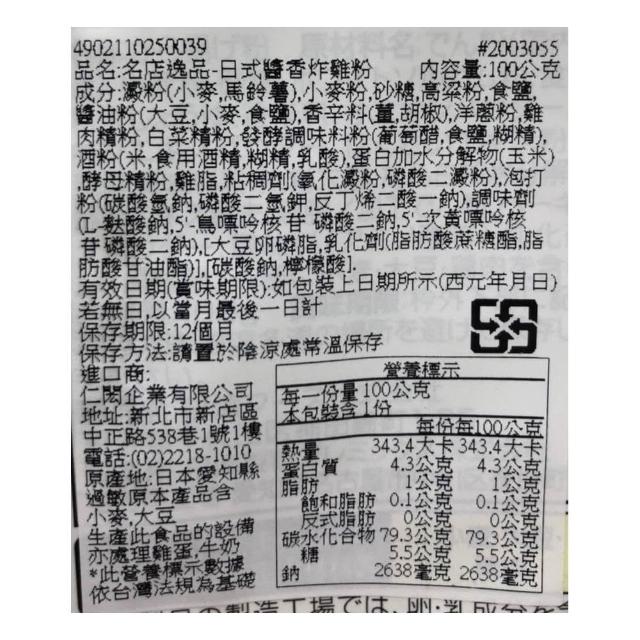 4902110250039 #2003055
品名:名店逸品-日式醬香炸雞粉 內容量:100公克
成分:澱粉(小麥,馬鈴薯),小麥粉,砂糖,高粱粉,食鹽,
醬油粉(大豆,小麥,食鹽),香辛料(薑,胡椒),洋蔥粉,雞
肉精粉,白菜精粉,發酵調味料粉(葡萄醋,食鹽,糊精),
酒粉(米,食用酒精,糊精,乳酸),蛋白加水分解物(玉米)
,酵母精粉,雞脂,粘稠劑(氧化澱粉,磷酸二澱粉),泡打
粉(碳酸氫鈉,磷酸二氫鉀,反丁烯二酸一鈉),調味劑
(L-麩酸鈉,5'-鳥嘌呤核苷磷酸二鈉,5'-次黃嘌呤核
苷磷酸二鈉),[大豆卵磷脂,乳化劑(脂肪酸蔗糖酯,脂
肪酸甘油酯)],[碳酸鈉,檸檬酸].
有效日期(賞味期限):如包裝上日期所示(西元年月日)
若無日,以當月最後一日計
保存期限:12個月
保存方法:請置於陰涼處常溫保存
進口商:
仁閎企業有限公司
地址:新北市新店區
中正路538巷1號1樓
電話:(02)2218-1010
原產地:日本愛知縣
過敏原本產品含
小麥,大豆
生產此食品的設備
亦處理雞蛋,牛奶
*此營養標示數據
依台灣法規為基礎
營養標示
每一份量100公克
本包裝含1份
每份 每100公克
熱量 343.4大卡 343.4大卡
蛋白質 4.3公克 4.3公克
脂肪 1公克 1公克
飽和脂肪 0.1公克 0.1公克
反式脂肪 0公克 0公克
碳水化合物 79.3公克 79.3公克
糖 5.5公克 5.5公克
鈉 2638毫克 2638毫克